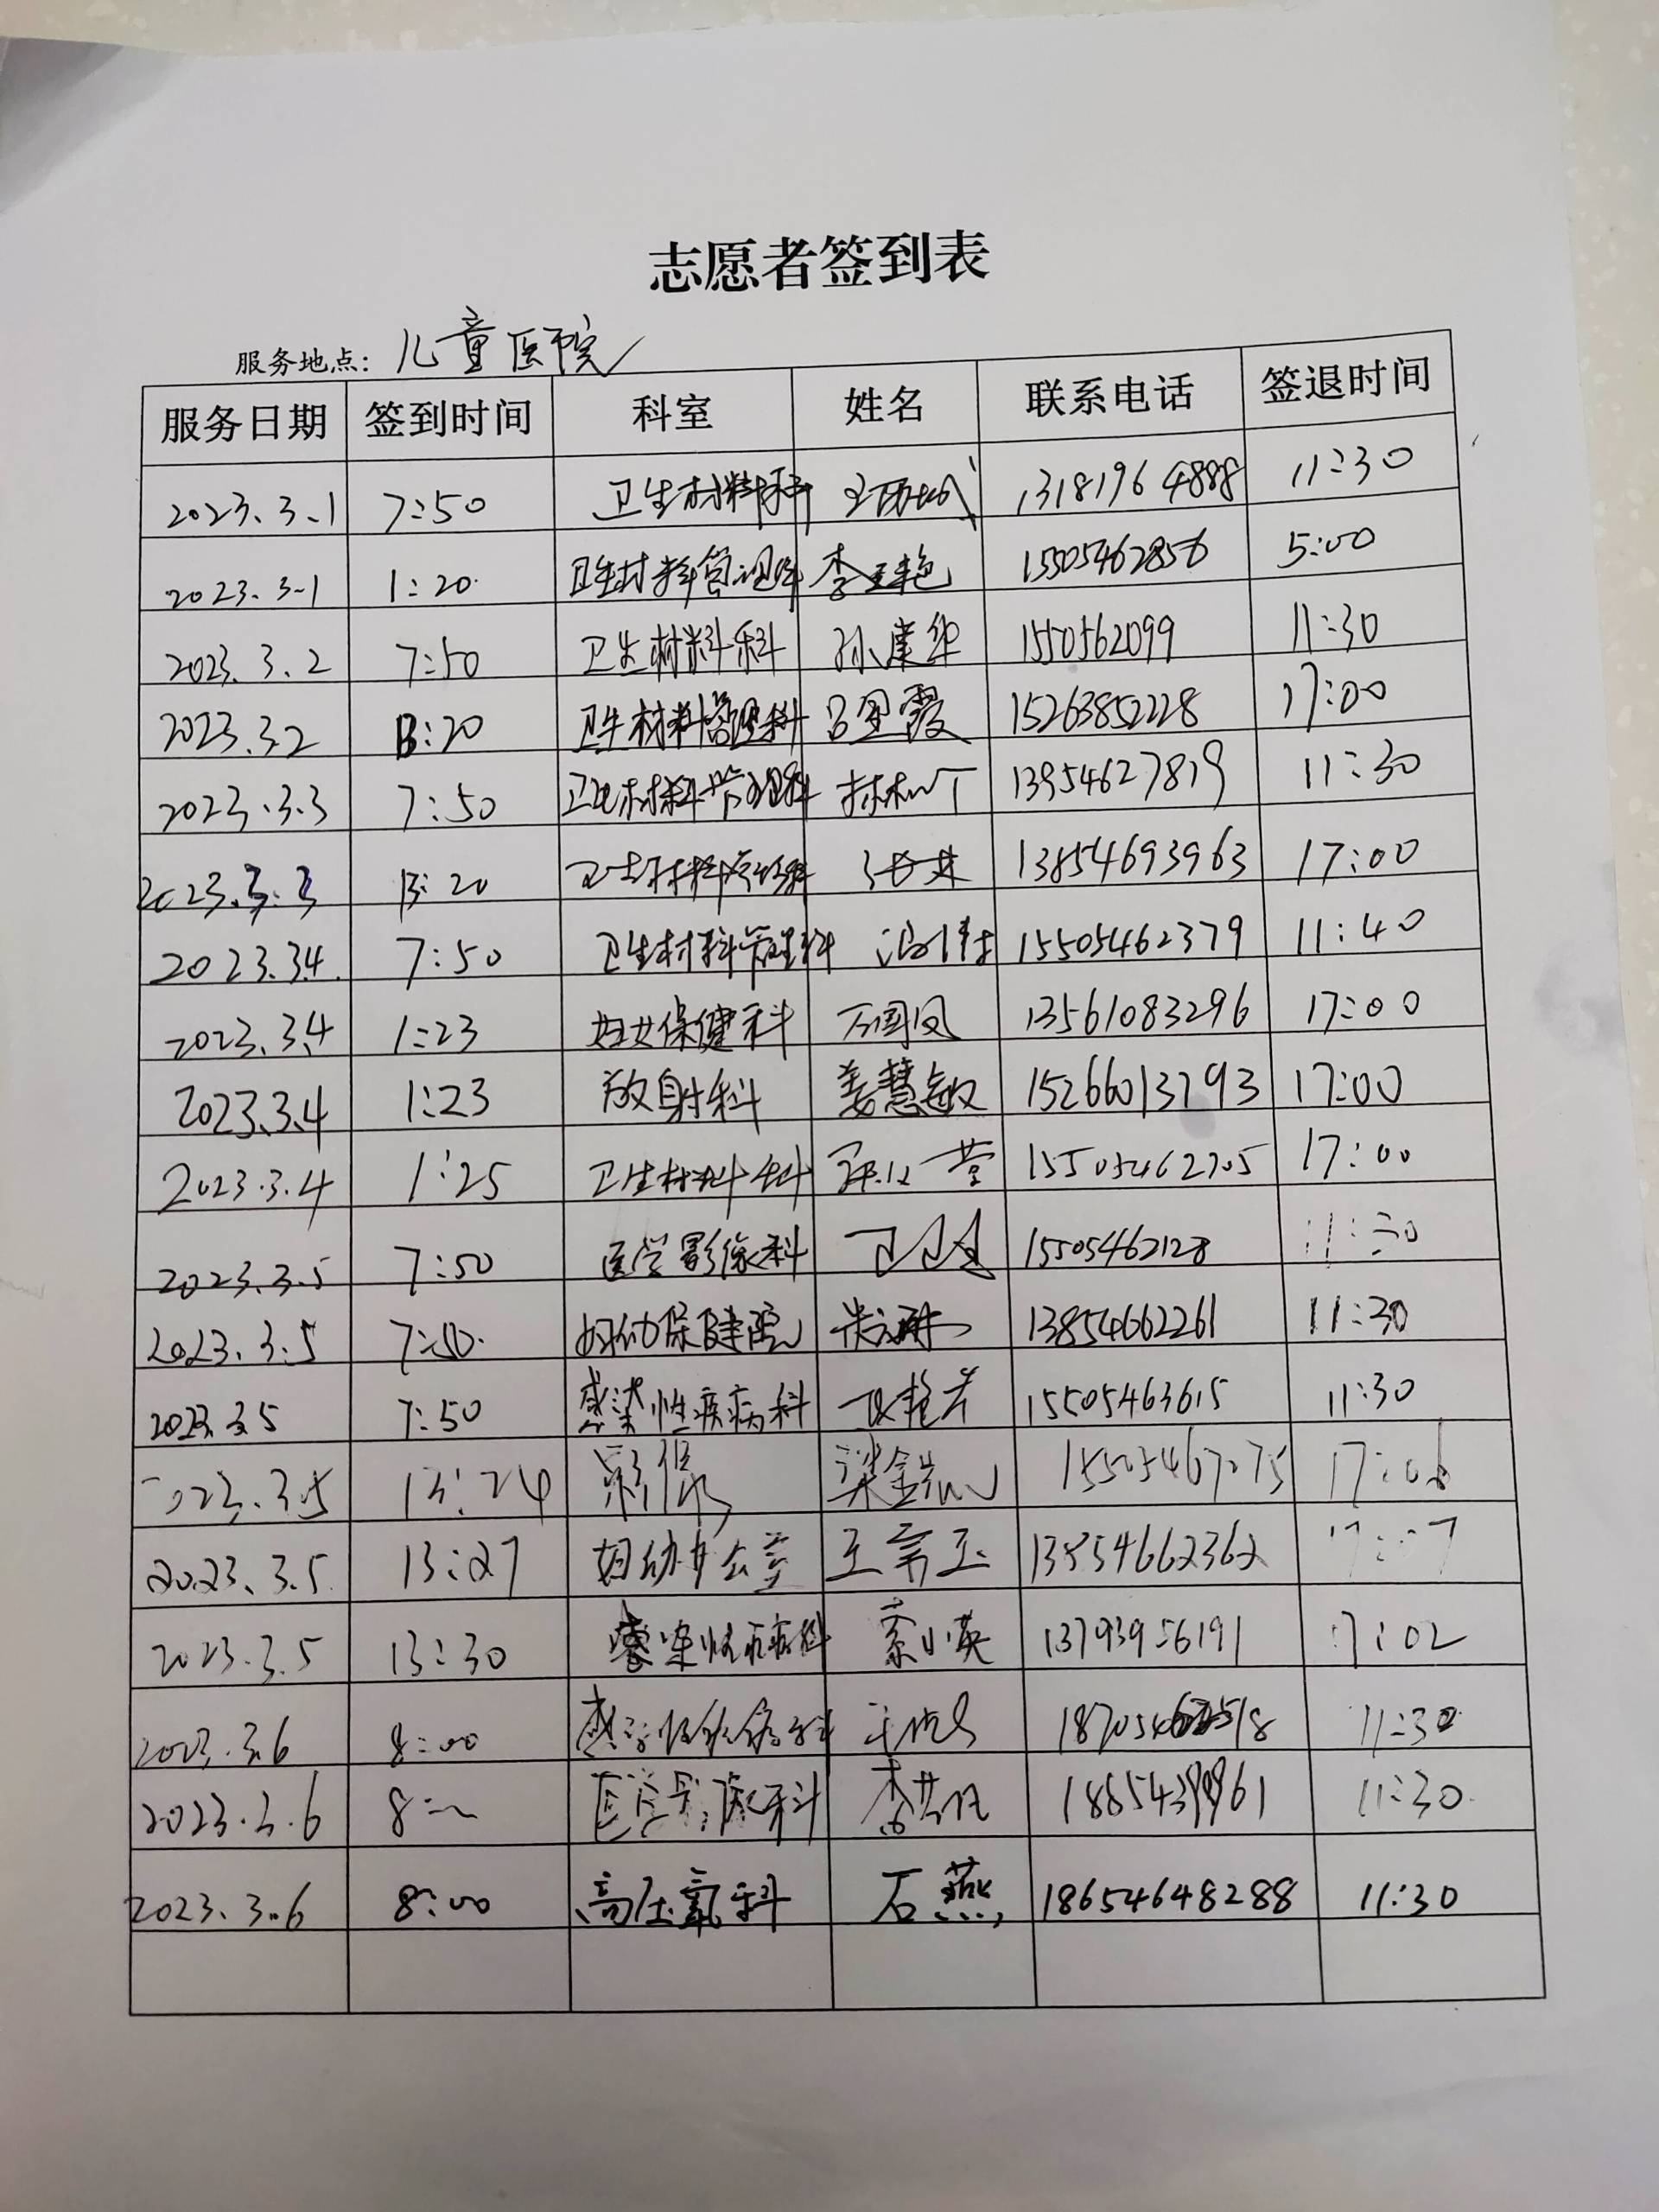 志愿者签到表
服务地点: 儿童医院
服务日期 签到时间 科室 姓名 联系电话 签退时间
2023.3.1 7:50 卫生材料科 13181964888 11:30
2023.3.1 1:20 卫生材料管理科 李玉艳 15505462856 5:00
2023.3.2 7:50 卫生材料科 孙建华 1550562099 11:30
2023.3.2 13:20 卫生材料管理科 吕圣霞 15263852228 17:00
2023.3.3 7:50 卫生材料管理科 13954627819 11:30
2023.3.3 13:20 卫生材料管理科 13854693963 17:00
2023.3.4 7:50 卫生材料管理科 15505462379 11:40
2023.3.4 1:23 妇女保健科 万国凤 13561083296 17:00
2023.3.4 1:23 放射科 姜慧敏 15266013793 17:00
2023.3.4 1:25 卫生材料科 15505462705 17:00
2023.3.5 7:50 医学影像科 15505462128 11:30
2023.3.5 7:50 妇幼保健院 13854662261 11:30
2023.3.5 7:50 感染性疾病科 15505463615 11:30
2023.3.5 13:24 影像 17:06
2023.3.5 13:27 妇幼办公室 13854662362 17:07
2023.3.5 13:30 感染性疾病科 索小英 13793956191 17:02
2023.3.6 8:00 感染性疾病科 11:30
2023.3.6 8:00 医学影像科 11:30
2023.3.6 8:00 高压氧科 石燕 18654648288 11:30